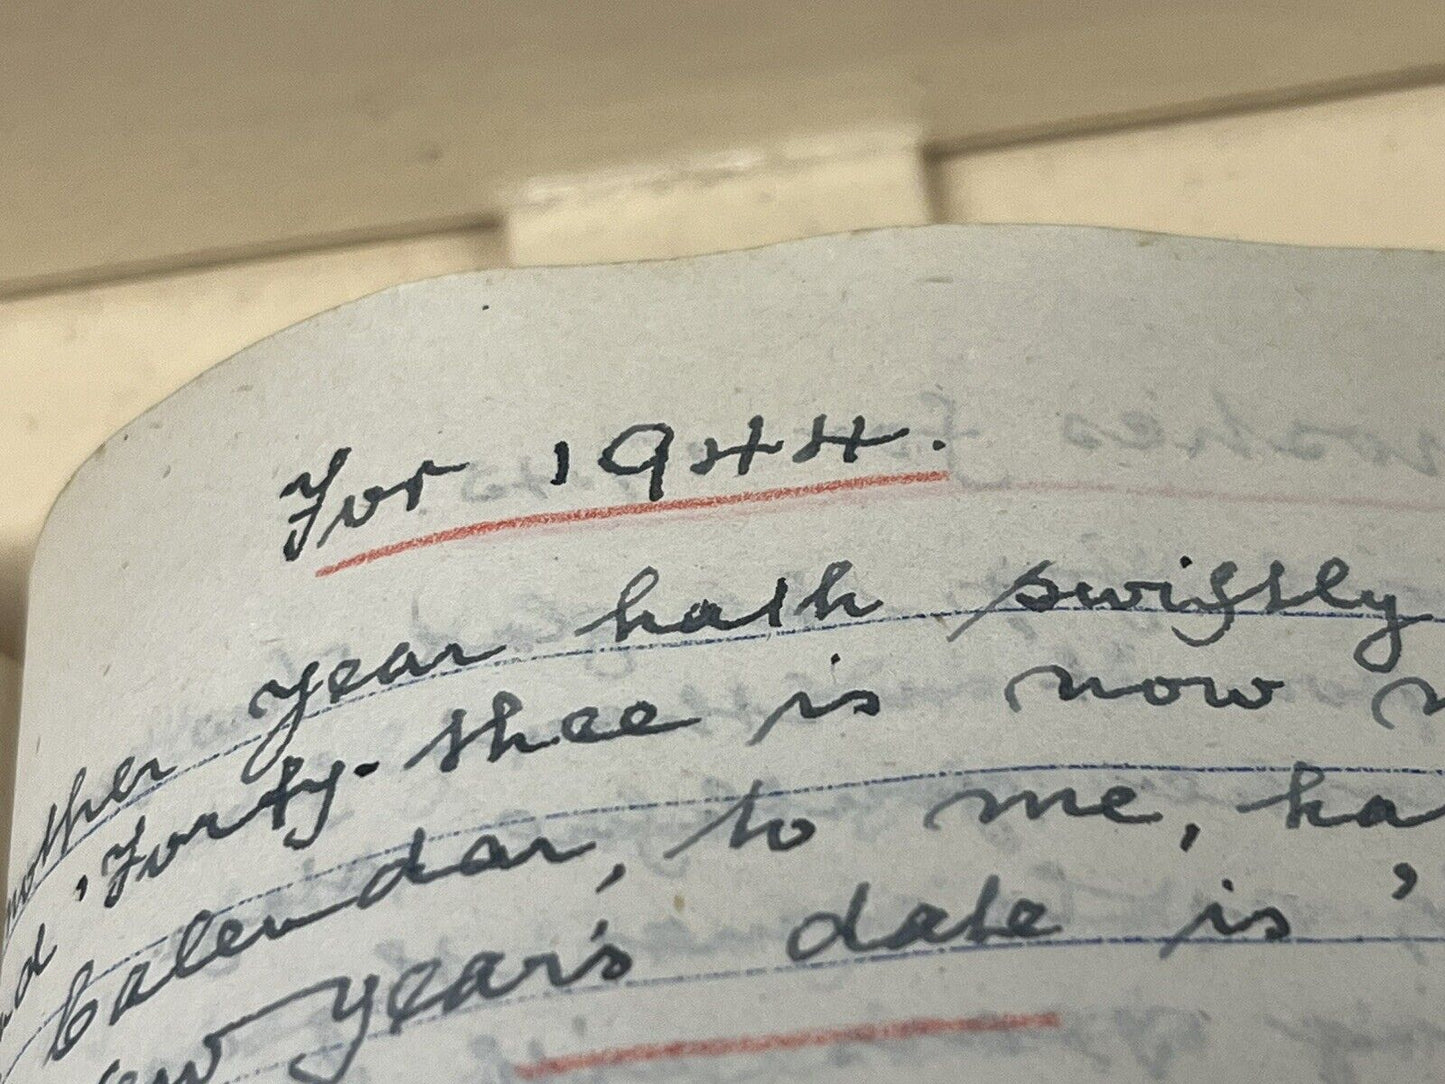 For 1944.
nother year hath swiftly
nd 'Forty-thee is now
Calendar, to me, ha
ew Year's date is '